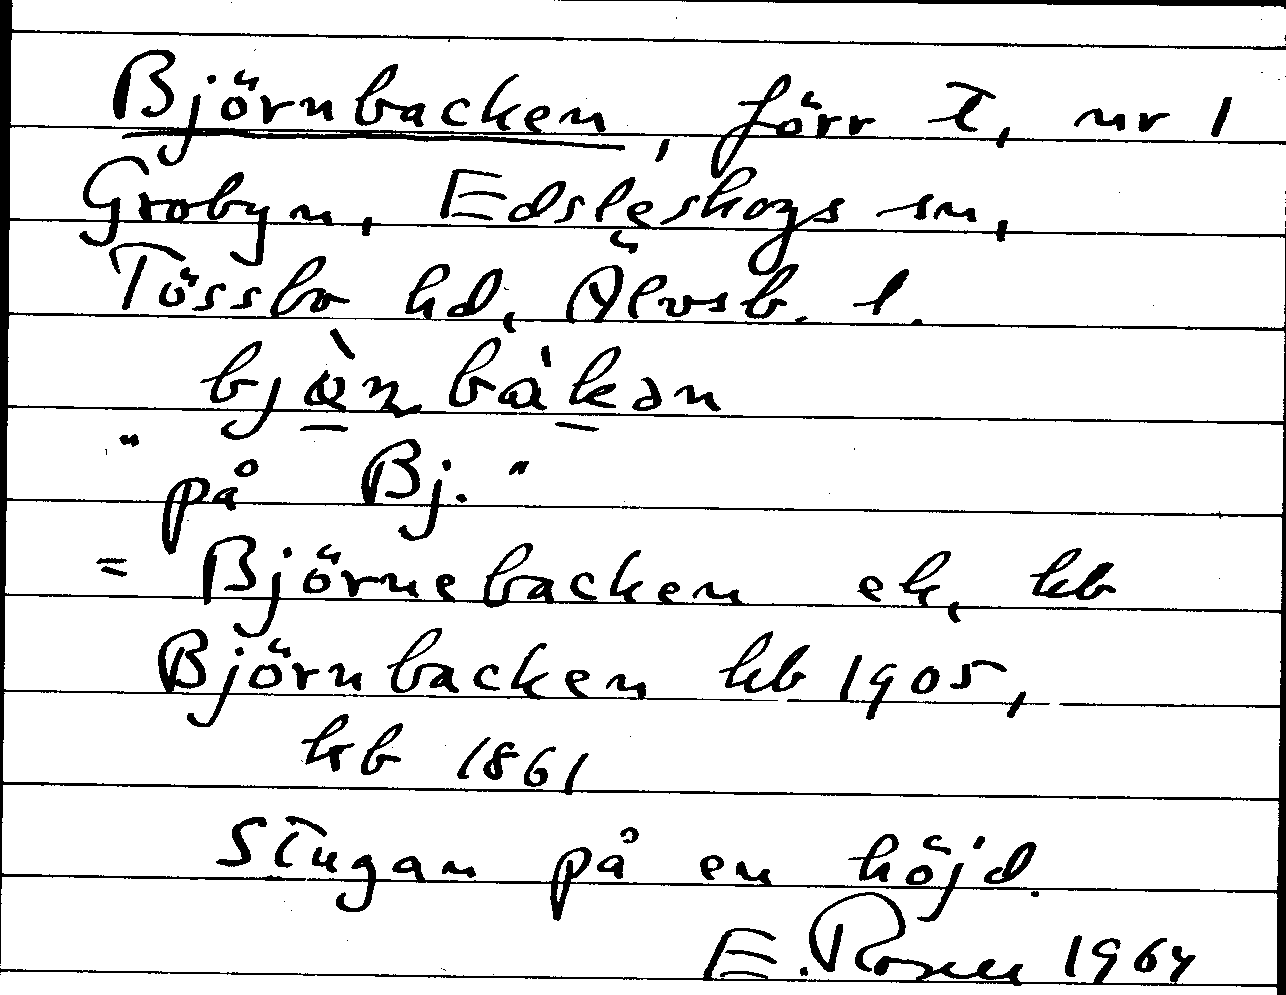 Björnbacken, förr t, nr 1
Grobyn, Edsleskogs sn,
Tössbo hd, Älvsb. l.
"på Bj."
= Björnebacken ek, kb
Björnbacken kb 1905,
kb 1861
Stugan på en höjd.
E. Rosell 1964